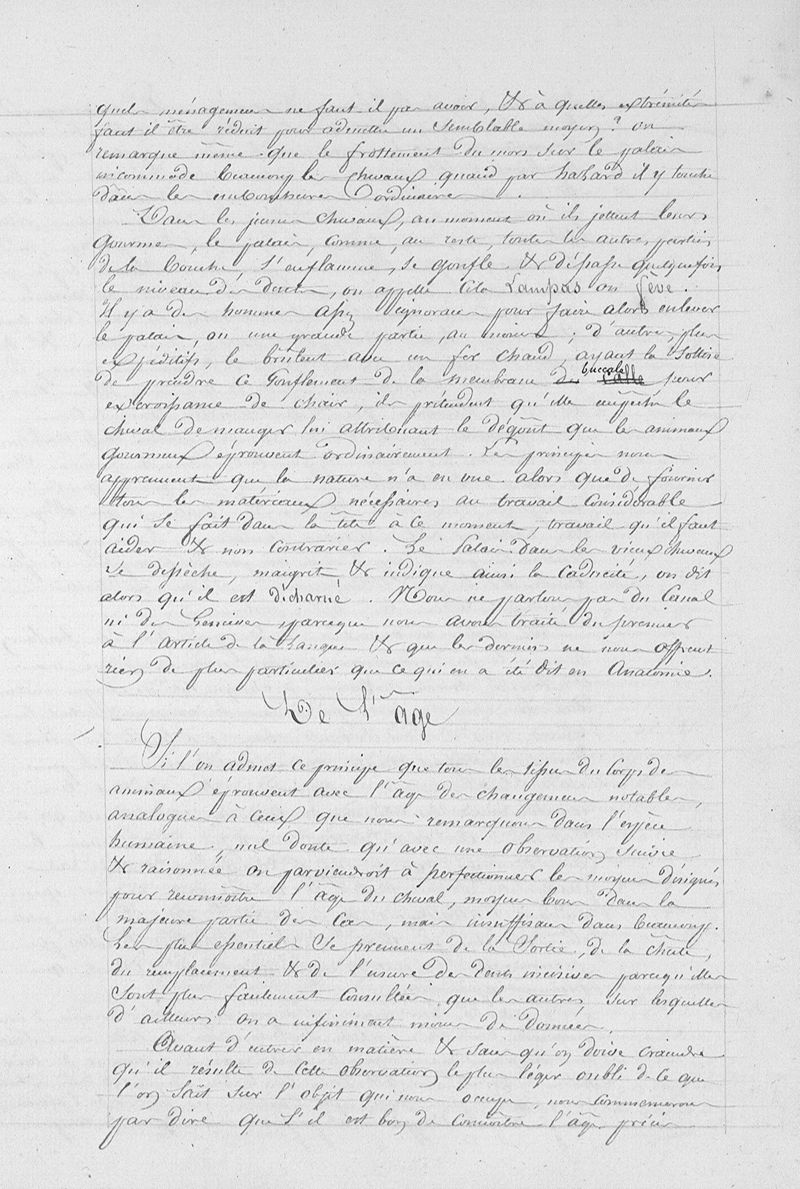 quels ménagemens ne faut il pas avoir, & à quelles extrémités
faut il être réduit pour admettre un semblable moyen? on
remarque même que le frottement du mors sur le palais
incommode beaucoup les chevaux quand par hazard il y touche
dans les embouchures ordinaires.
Dans les jeunes chevaux, au moment où ils jettent leurs
gourmes, le palais, comme, au reste, toutes les autres parties
de la bouche, s'enflamme, se gonfle & dépasse quelquefois
le niveau des dents, on appelle cela Lampas ou fève.
Il y a des hommes assez ignorans pour faire alors enlever
le palais, ou une grande partie, au moins; d'autres, plus
expéditifs, le brûlent avec un fer chaud, ayant la sottise
de prendre ce gonflement de la membrane buccale pour
excroissance de chair, ils prétendent qu'elle empêche le
cheval de manger lui attribuant le dégoût que les animaux
gourmeux éprouvent ordinairement. Les principes nous
apprennent que la nature n'a en vue alors que de fournir
tous les matériaux nécessaires au travail considérable
qui se fait dans la tête à ce moment, travail qu'il faut
aider & non contrarier. Le Palais dans les vieux chevaux
se dessèche, maigrit & indique ainsi la caducité, on dit
alors qu'il est décharné. Nous ne parlons pas du Canal
ni des Gencives, parceque nous avons traité du premier
à l'article de la Langue & que les derniers ne nous offrent
rien de plus particulier que ce qui en a été dit en Anatomie.
De l'âge
Si l'on admet ce principe que tous les tissus du corps des
animaux éprouvent avec l'âge des changemens notables,
analogues à ceux que nous remarquons dans l'espèce
humaine, nul doute qu'avec une observation suivie
& raisonnée on parviendroit à perfectionner les moyens désignés
pour reconnoître l'âge du cheval, moyens bons dans la
majeure partie des cas, mais insuffisans dans beaucoup.
Les plus essentiels se prennent de la sortie, de la chûte,
du remplacement & de l'usure des dents incisives parcequ'elles
sont plus facilement consultées que les autres sur lesquelles
d'ailleurs on a infiniment moins de données.
Avant d'entrer en matière & sans qu'on doive craindre
qu'il résulte de cette observation le plus léger oubli de ce que
l'on sait sur l'objet qui nous occupe, nous commencerons
par dire que s'il est bon de connoître l'âge précis